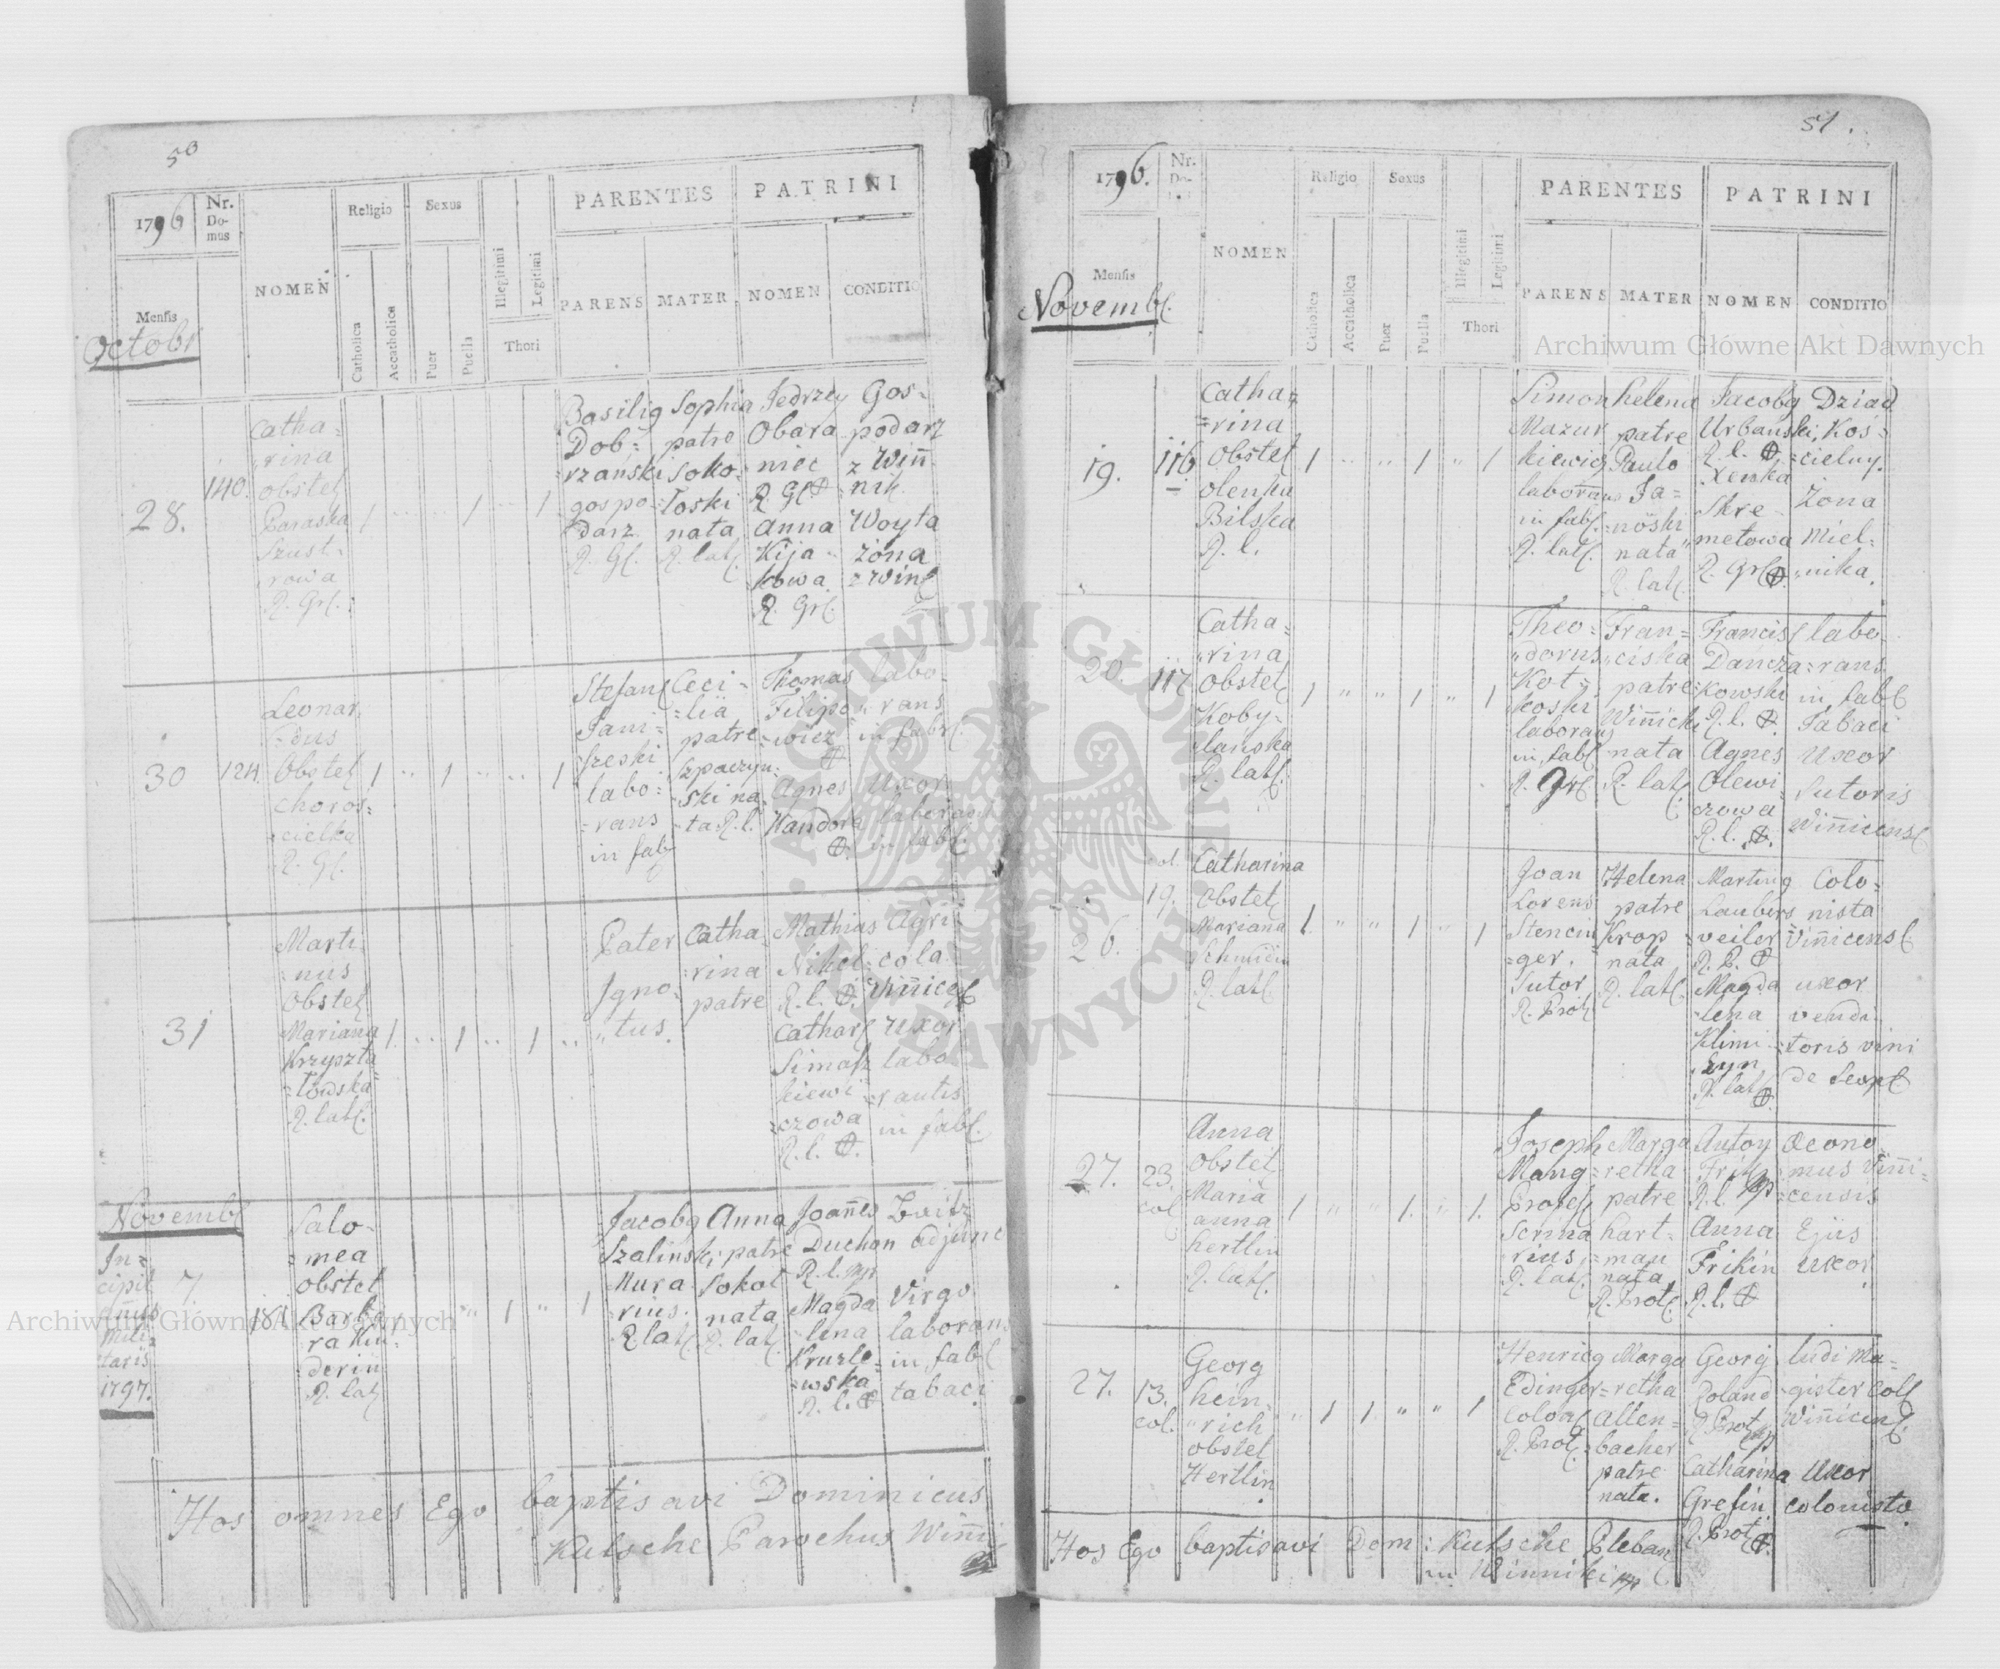 50
1796
Nr. Domus
NOMEN
Religio
Sexus
Illegitimi
Legitimi
PARENTES
PATRINI
Mensis
Octobr
Catholica
Accatholica
Puer
Puella
Thori
PARENS
MATER
NOMEN
CONDITIO
28.
140.
Catha=
rina
obstet
Paraska
Szust-
rowa
R. Grć.
1
1
1
Basilig
Dob=
rzanski
gospo=
darz
R. Gć.
Sophia
patre
Soko-
łoski
nata
R. lat.
Jedrzey
Obara
niec
R. Gć
Anna
Kija-
kowa
R. Gr.
Gos-
podarz
z Win-
nik
Woyta
żona
z Win
30
124.
Leonar
dus
Obstet
Choros=
cielka
R. Gć.
1
1
1
Stefan
Jani=
szeski
labo=
rans
in fab
Ceci-
lia
patre
Szpaczyn=
ski na
ta R. l.
Thomas
Filipo-
wicz
Agnes
Kandora
labo-
rans
in fabr.
Uxor
laborant
in fabr.
31
Marti-
nus
Obstet
Mariana
Krzyszta
łowska
R. lat.
1
1
1
Pater
Igno-
tus.
Catha
rina
patre
Mathias
Nikel
R. l.
Cathar
Simasz
kiewi
czowa
R. l.
Agri-
cola
Winnices
Uxor
labo
rantis
in fab.
Novemb
In=
cipit
annus
mili
taris
1797.
7.
181
Salo-
mea
obstet
Barba
ra Kin-
derin
R. lat
1
1
Jacobg
Szalinski
Mura
rius.
R. lat
Anna
patre
Sokol
nata
R. lat.
Joannes
Duchon
R. l. mp
Magda
lena
Kruzle=
wska
R. l.
Zwitz
adjunc
Virgo
laborans
in fab
tabaci
Hos omnes Ego baptisavi Dominicus
Kutsche Parochus Winni
51.
1796.
Nr. Do-
NOMEN
Religio
Sexus
Illegitimi
Legitimi
PARENTES
PATRINI
Mensis
Novemb.
Catholica
Accatholica
Puer
Puella
Thori
PARENS
MATER
NOMEN
CONDITIO
19.
116
Catha
=rina
Obstet
olenka
Bilska
R. l.
1
1
1
Simon
Mazur
kiewig
laborans
in fab.
R. lat.
Helena
patre
Paulo
Ja=
noski
nata
R. lat.
Jacobg
Urbanski
R. l.
Xenka
Skre-
metowa
R. Gr
Dziad
Kos=
cielny.
Żona
Miel=
nika.
20.
117
Catha=
rina
Obstet
Koby-
lańska
R. lat.
1
1
1
Theo=
dorus
Kot=
koski
laborans
in fab
R. Gr
Fran=
ciska
patre
Winnicki
nata
R. lat
Francis
Dancza
kowski
R. l.
Agnes
Olewi
czowa
R. l.
labo
rans
in fab
Tabaci
Uxor
Sutoris
Winnicens
26.
19.
Catharina
obstet
Mariana
Schmidin
R. lat.
1
1
1
Joan
Lorens
Stencin
ger.
Sutor
R. Prot
Helena
patre
Krop
nata
R. lat.
Marting
Laubers
weiler
R. P.
Magda
lena
Klimi
szyn
R. lat
Colo=
nista
Winnicens
uxor
vendi
toris vini
de Leopl
27.
23.
col
Anna
Obstet
Maria
anna
hertlin
R. Lat.
1
1.
1.
Joseph
Mang
Profess
Scrina
rius
R. lat.
Marga
retha
patre
hart=
man
nata
R. Prot
Antoy
Frik
R. l. mp
Anna
Frikin
R. l.
Oecono
mus Winni-
censis
Ejus
uxor
27.
13.
col.
Georg
hein-
rich
obstet
Hertlin
1
1
1
Henricg
Edinger
Colon
R. Prot.
Marga
retha
Allen=
bacher
patre
nata.
Georg
Roland
R. Prot
Catharina
Grefin
R. Prot
ludi Ma-
gister Coll
Winnicens
Uxor
coloniste
Hos Ego baptisavi Dom: Kutsche Pleban
in Winniki mp
Archiwum Główne Akt Dawnych
Archiwum Główne Akt Dawnych
ARCHIWUM GŁÓWNE AKT DAWNYCH